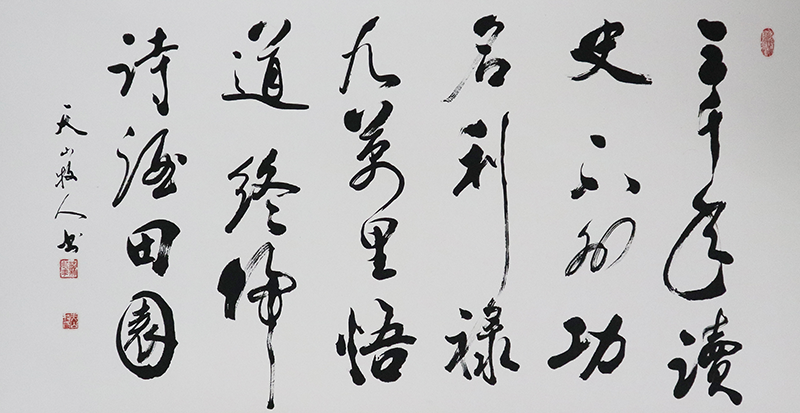 三千年讀
史不外功
名利祿
九萬里悟
道終歸
詩酒田園
天山牧人书